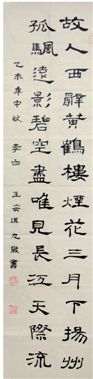 故人西辭黃鶴樓煙花三月下揚州
孤颿遠影碧空盡唯見長江天際流
乙未年中秋 李白 王安淇九歲書